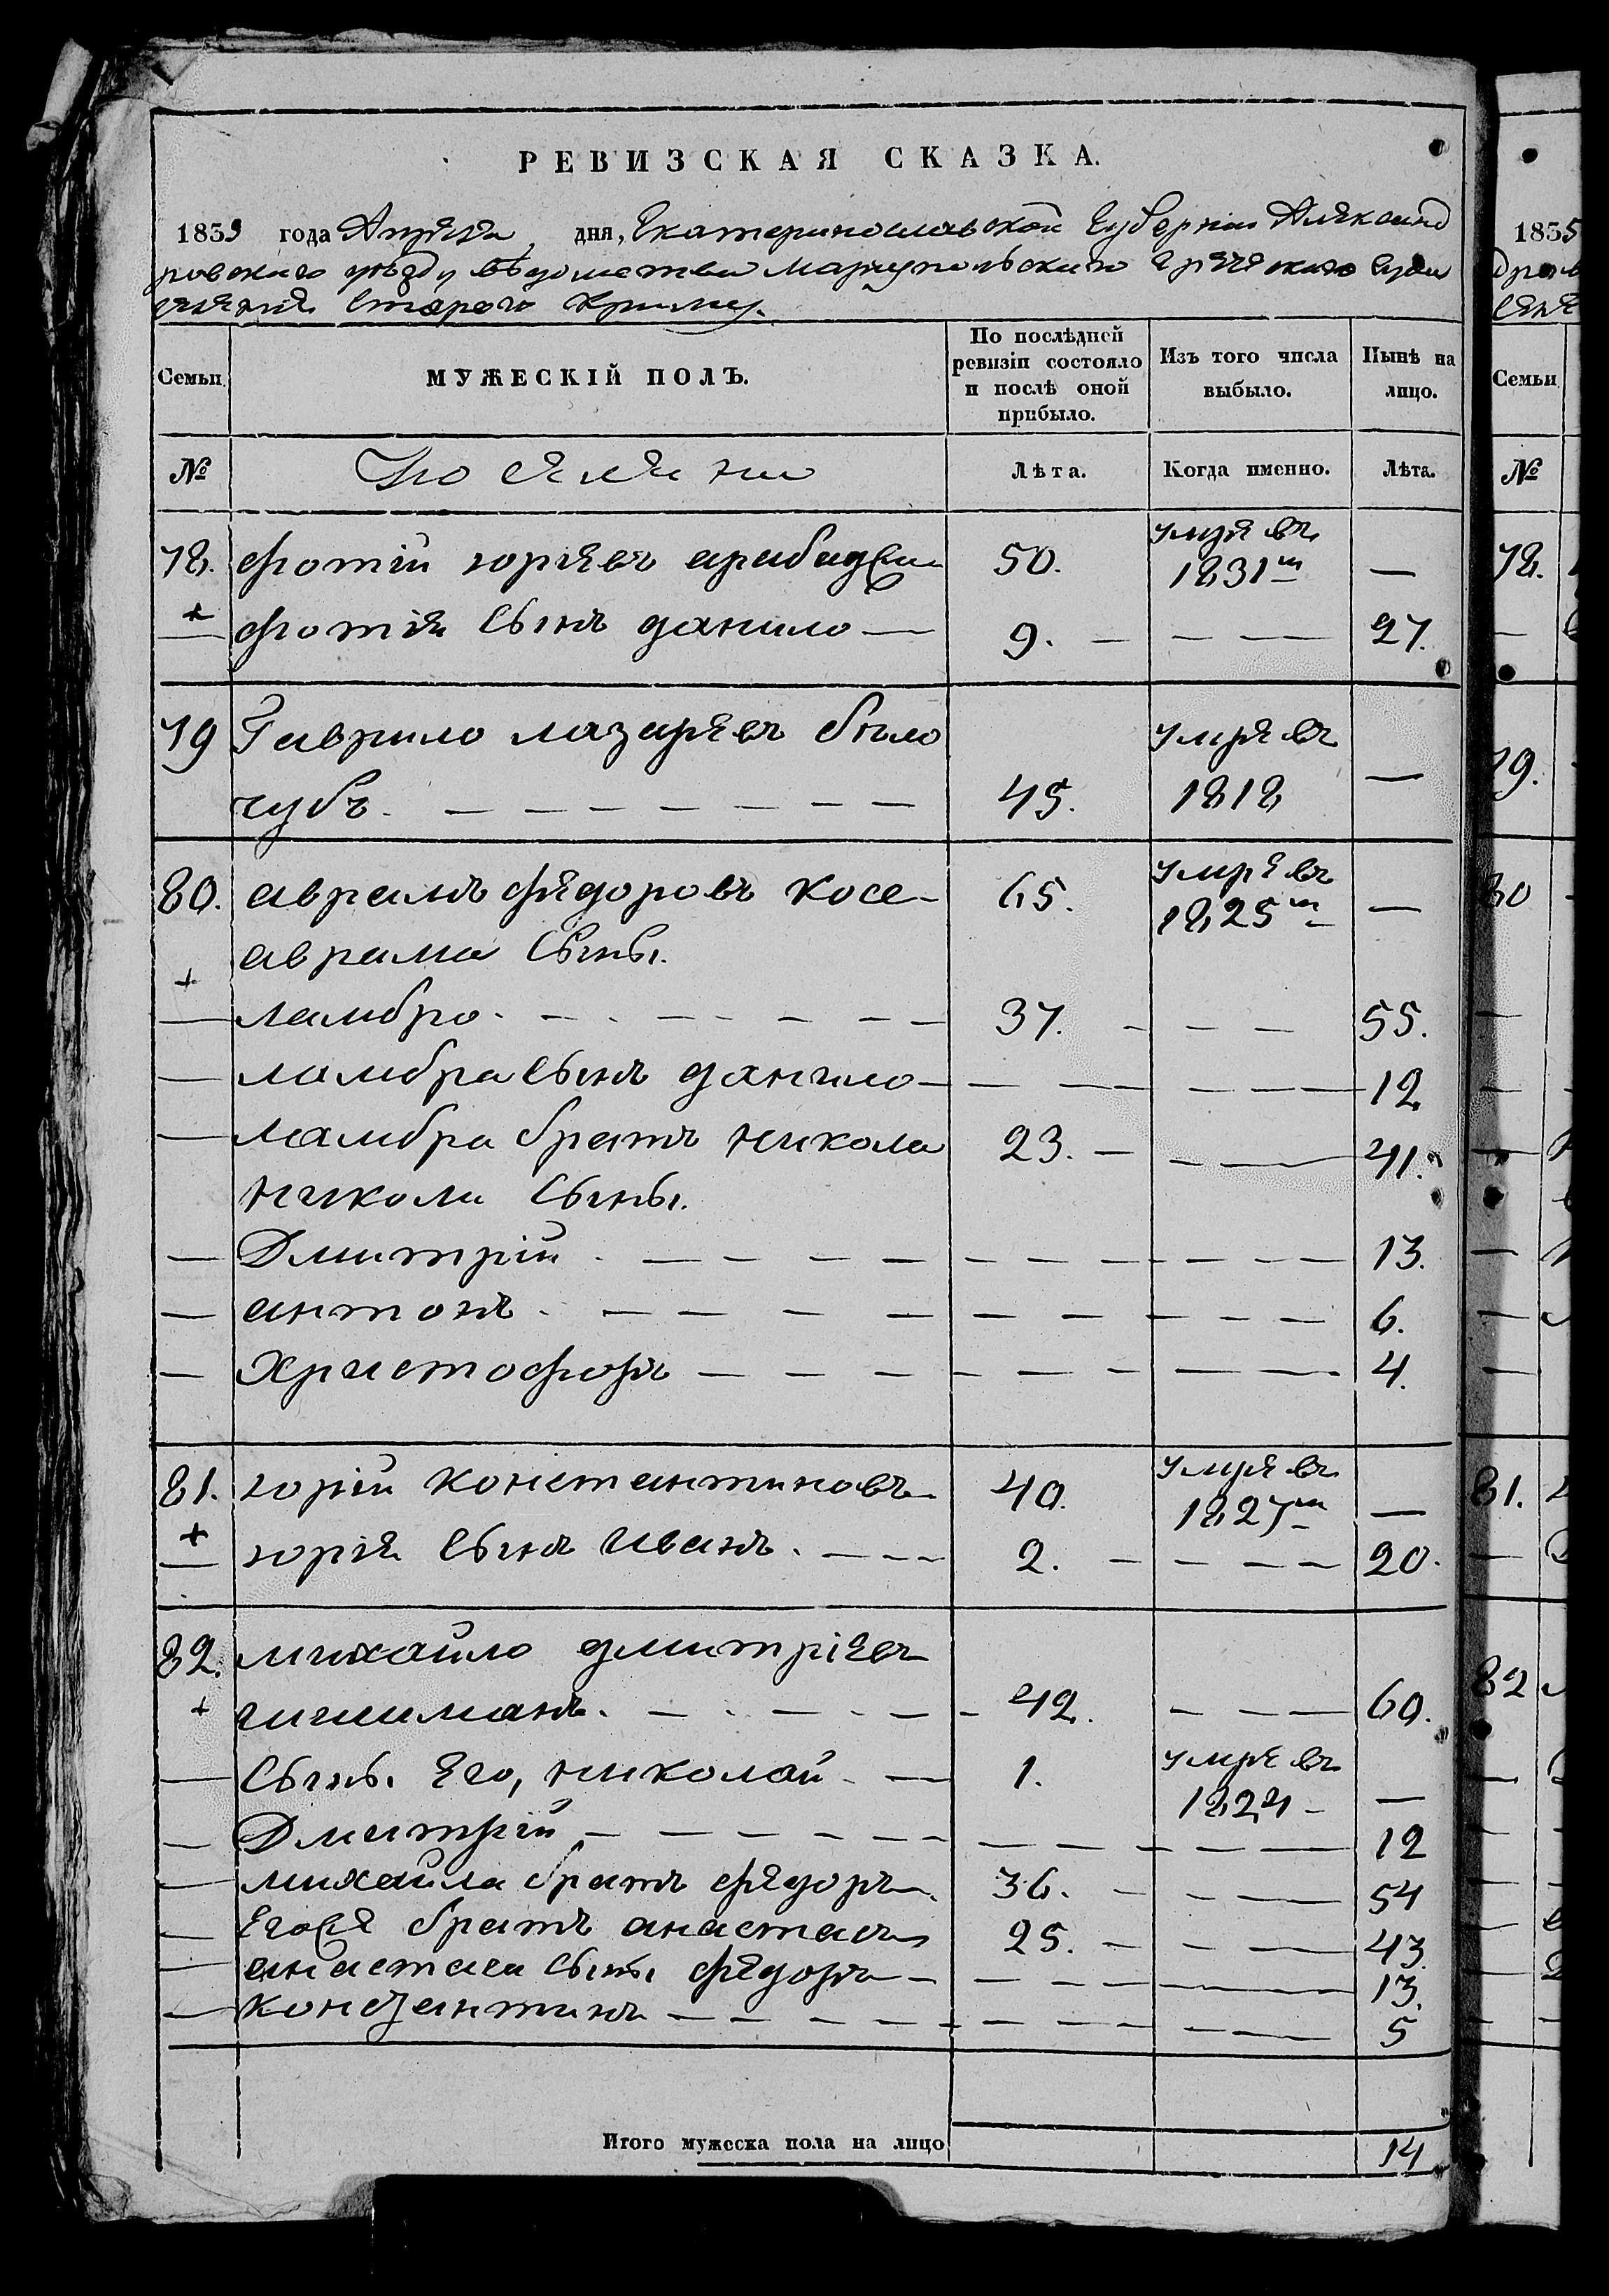 РЕВИЗСКАЯ СКАЗКА.
1835 года Апреля дня, Екатеринославской Губернии Александ
ровского уѣзду вѣдомства Мариупольского греческого Суда
селения Старого Крыму.
Семьи
МУЖЕСКІЙ ПОЛЪ.
По послѣдней ревизіи состояло и послѣ оной прибыло.
Изъ того числа выбыло.
Нынѣ на лицо.
№
Поселяни
Лѣта.
Когда именно.
Лѣта.
78. фотій юриевъ арабаджи 50. умре въ 1831м —
+ — фотия Сынъ данило — 9. — — — 27.
79 Гаврило лазаревъ было
чубъ. — — — — — — — 45. умре въ 1818 —
80. аврамъ федоровъ косе- 65. умре въ 1825м —
аврама Сыны.
+ — ламбро. — — — — — — 37. — — — — 55.
— ламбра сынъ данило — — — — — 12
— ламбра братъ никола 23. — — — 41.
николи Сыны.
— Дмитрій. — — — — — — — — — — — — 13.
— антонъ. — — — — — — — — — — — — 6.
— Христофоръ — — — — — — — — — 4.
81. юрій константиновъ 40. умре въ 1827м —
+ — юрия Сынъ иванъ. — — — 2. — — — — 20.
82. михайло дмитріевъ
+ чичиманъ. — — — — — — 42. — — — 60.
— Сынъ. Его, николай — 1. умре въ 1824 — —
— Дмитрій — — — — — — — — — — — — 12
— михайла братъ федоръ. 36. — — — 54
— Егоже братъ анастасъ 25. — — — 43.
— анастаса сыны федоръ — — — — — 13.
— константинъ — — — — — — — — — — 5
Итого мужеска пола на лицо 14
1835
Семьи
№
78.
79.
80
81.
82